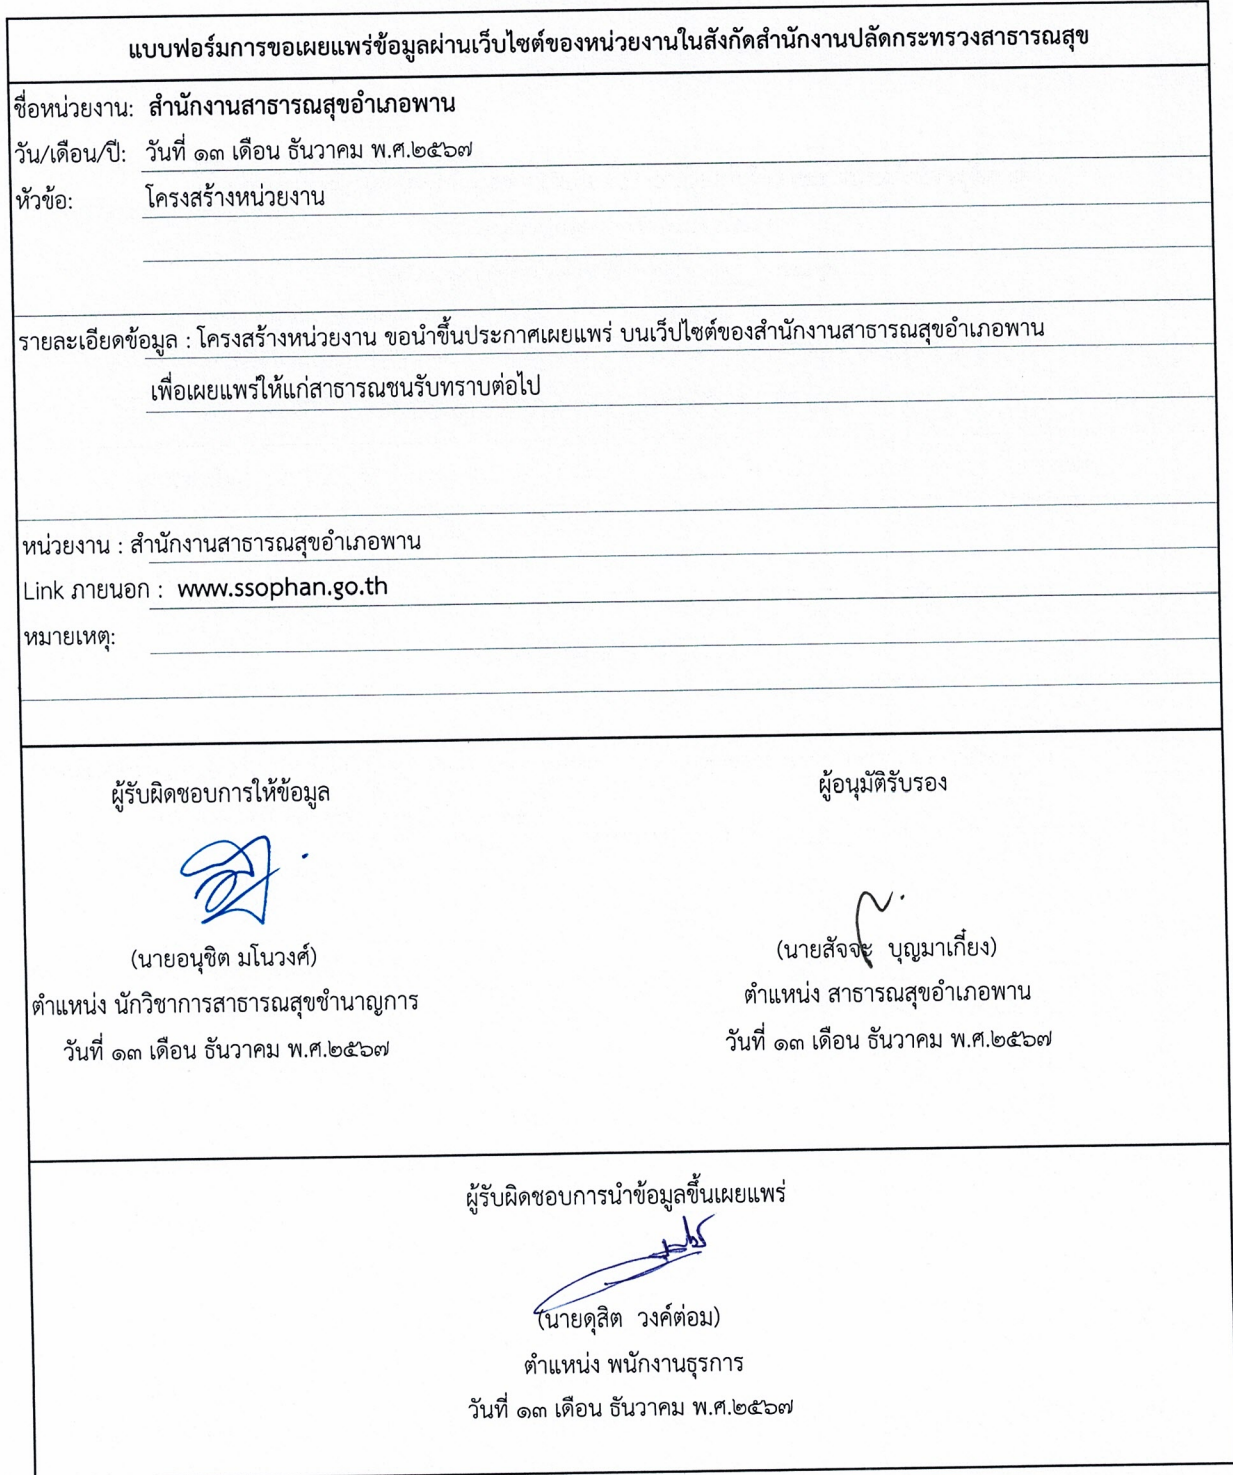 แบบฟอร์มการขอเผยแพร่ข้อมูลผ่านเว็บไซต์ของหน่วยงานในสังกัดสำนักงานปลัดกระทรวงสาธารณสุข
ชื่อหน่วยงาน: สำนักงานสาธารณสุขอำเภอพาน
วัน/เดือน/ปี: วันที่ ๑๓ เดือน ธันวาคม พ.ศ.๒๕๖๗
หัวข้อ: โครงสร้างหน่วยงาน
รายละเอียดข้อมูล : โครงสร้างหน่วยงาน ขอนำขึ้นประกาศเผยแพร่ บนเว็ปไซต์ของสำนักงานสาธารณสุขอำเภอพาน
เพื่อเผยแพร่ให้แก่สาธารณชนรับทราบต่อไป
หน่วยงาน : สำนักงานสาธารณสุขอำเภอพาน
Link ภายนอก : www.ssophan.go.th
หมายเหตุ:
ผู้รับผิดชอบการให้ข้อมูล
(นายอนุชิต มโนวงศ์)
ตำแหน่ง นักวิชาการสาธารณสุขชำนาญการ
วันที่ ๑๓ เดือน ธันวาคม พ.ศ.๒๕๖๗
ผู้อนุมัติรับรอง
(นายสัจจะ บุญมาเกี๋ยง)
ตำแหน่ง สาธารณสุขอำเภอพาน
วันที่ ๑๓ เดือน ธันวาคม พ.ศ.๒๕๖๗
ผู้รับผิดชอบการนำข้อมูลขึ้นเผยแพร่
(นายดุสิต วงค์ต่อม)
ตำแหน่ง พนักงานธุรการ
วันที่ ๑๓ เดือน ธันวาคม พ.ศ.๒๕๖๗